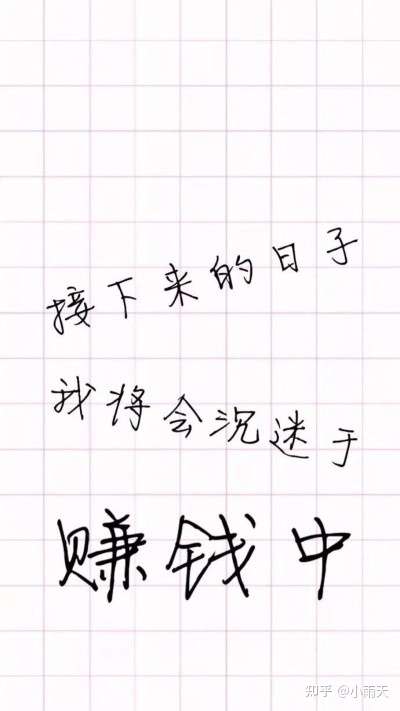 接下来的日子
我将会沉迷于
赚钱中
知乎 @小雨天